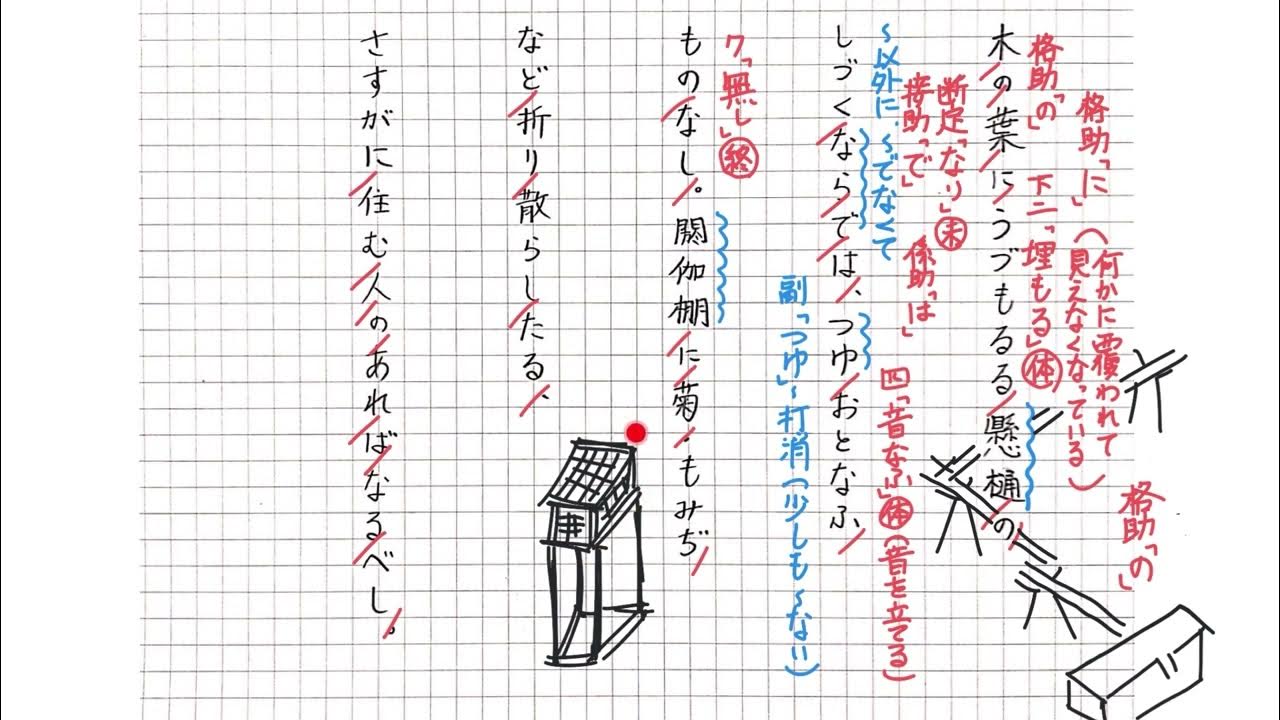 格助「の」
格助「に」
下二「埋もる」体(何かに覆われて
見えなくなっている)
格助「の」
木の葉にうづもるる懸樋の
断定「なり」未
接助「で」
係助「は」
四「音なふ」体(音を立てる)
~以外に、~でなくて
しづくならでは、つゆおとなふ
副「つゆ」~打消(少しも~ない)
ク「無し」終
ものなし。閼伽棚に菊・もみぢ
など折り散らしたる、
さすがに住む人のあればなるべし。